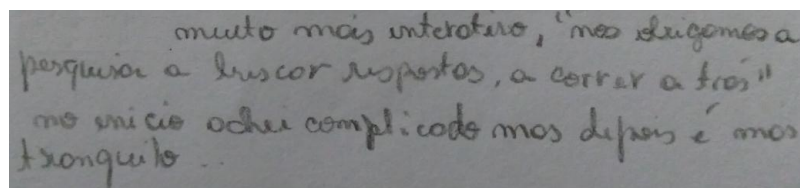 muito mais interativo, "nos obrigamos a
pesquisar a buscar respostas, a correr a tras"
no inicio achei complicado mas depois é mas
tranquilo..